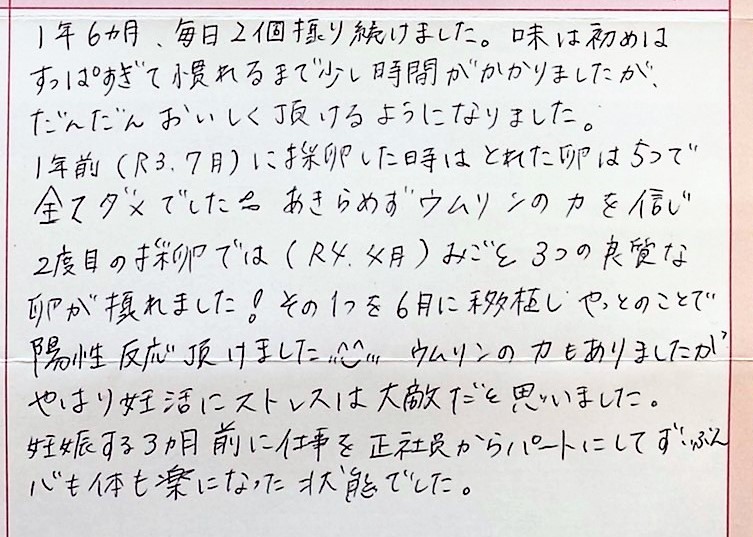 1年6ヵ月、毎日2個摂り続けました。味は初めは
すっぱすぎて慣れるまで少し時間がかかりましたが、
だんだんおいしく頂けるようになりました。
1年前(R3.7月)に採卵した時はとれた卵は5つで
全てダメでした あきらめずウムリンの力を信じ
2度目の採卵では(R4.4月)みごと3つの良質な
卵が獲れました!その1つを6月に移植しやっとのことで
陽性反応頂けました ウムリンの力もありましたが
やはり妊活にストレスは大敵だと思いました。
妊娠する3ヵ月前に仕事を正社員からパートにしてずいぶん
心も体も楽になった状態でした。